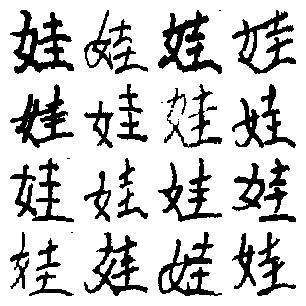 娃娃娃娃
娃娃娃娃
娃娃娃娃
娃娃娃娃